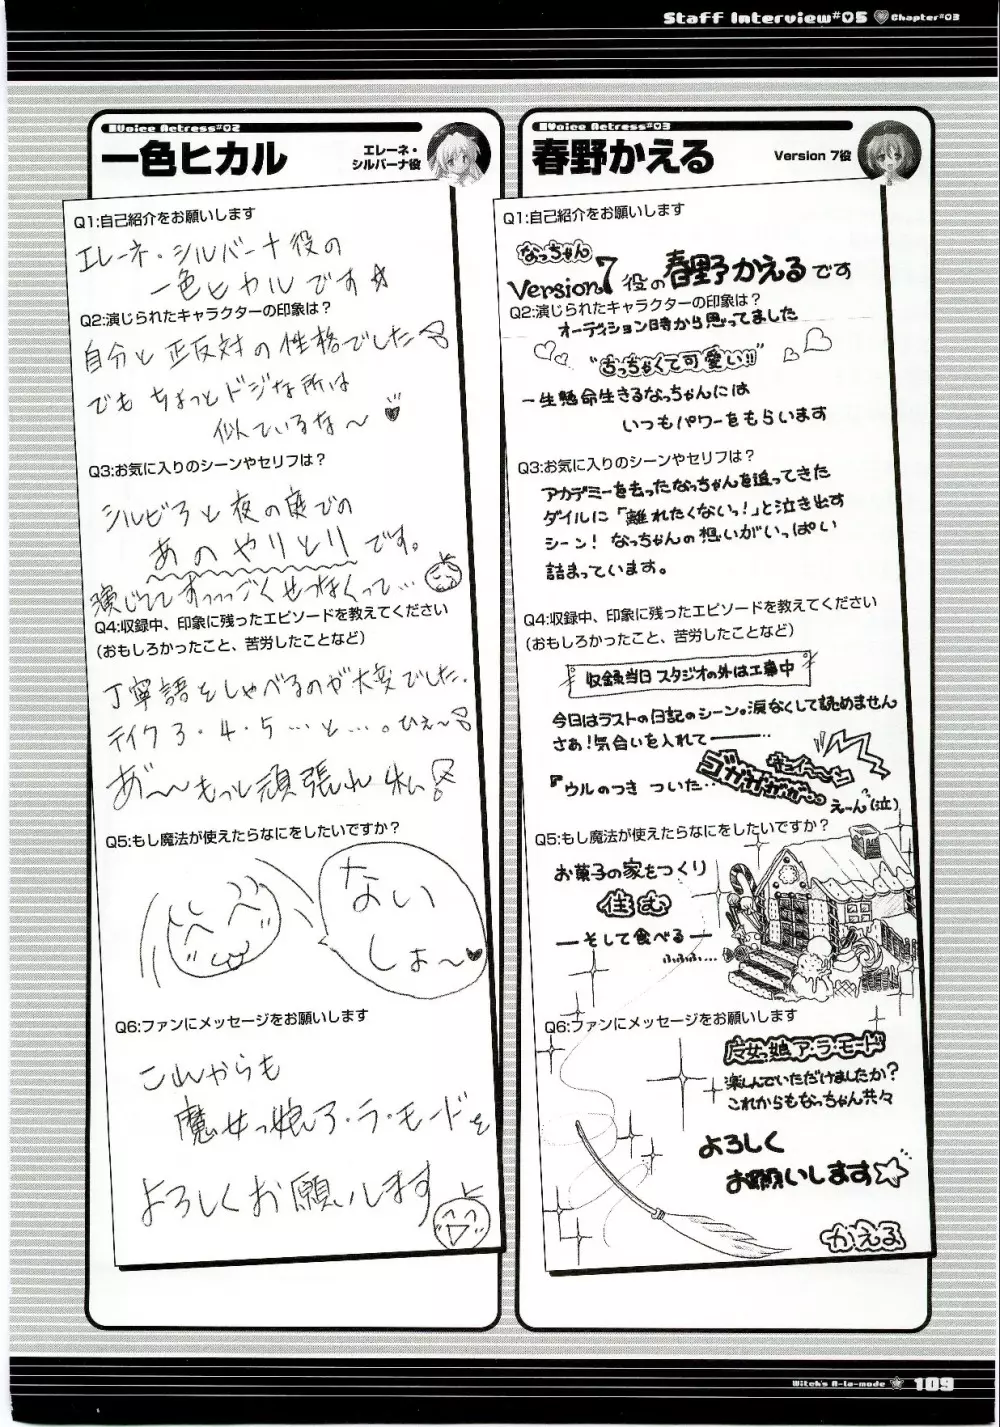 Staff Interview#05 Chapter#03
Voice Actress#02
一色ヒカル
エレーネ・
シルバーナ役
Q1:自己紹介をお願いします
エレーネ・シルバーナ役の
一色ヒカルです☆
Q2:演じられたキャラクターの印象は?
自分と正反対の性格でした
でもちょっとドジな所は
似ているな〜♥
Q3:お気に入りのシーンやセリフは?
シルビアと夜の庭での
あのやりとりです。
演じててすっっっごくせつなくって…
Q4:収録中、印象に残ったエピソードを教えてください
(おもしろかったこと、苦労したことなど)
丁寧語をしゃべるのが大変でした.
テイク3・4・5…と…。ひえ〜
あ゛〜もっと頑張れ私
Q5:もし魔法が使えたらなにをしたいですか?
ない
しょ〜♥
Q6:ファンにメッセージをお願いします
これからも
魔女っ娘ア・ラ・モードを
よろしくお願いします
Voice Actress#03
春野かえる
Version 7役
Q1:自己紹介をお願いします
なっちゃん
Version7役の春野かえるです
Q2:演じられたキャラクターの印象は?
オーディション時から思ってました
"ちっちゃくて可愛い!!"
一生懸命生きるなっちゃんには
いつもパワーをもらいます
Q3:お気に入りのシーンやセリフは?
アカデミーを去ったなっちゃんを追ってきた
ダイルに「離れたくないっ!」と泣き出す
シーン!なっちゃんの想いがいっぱい
詰まっています。
Q4:収録中、印象に残ったエピソードを教えてください
(おもしろかったこと、苦労したことなど)
収録当日スタジオの外は工事中
今日はラストの日記のシーン。涙なくして読めません
さぁ!気合いを入れて―――…
『ウルのつき ついた…
ゴガガガガガ…
えーん(泣)
Q5:もし魔法が使えたらなにをしたいですか?
お菓子の家をつくり
住む
―そして食べる―
ふふふ…
Q6:ファンにメッセージをお願いします
魔女っ娘ア・ラ・モード
楽しんでいただけましたか?
これからもなっちゃん共々
よろしく
お願いします☆
かえる
Witch's A-la-mode 109